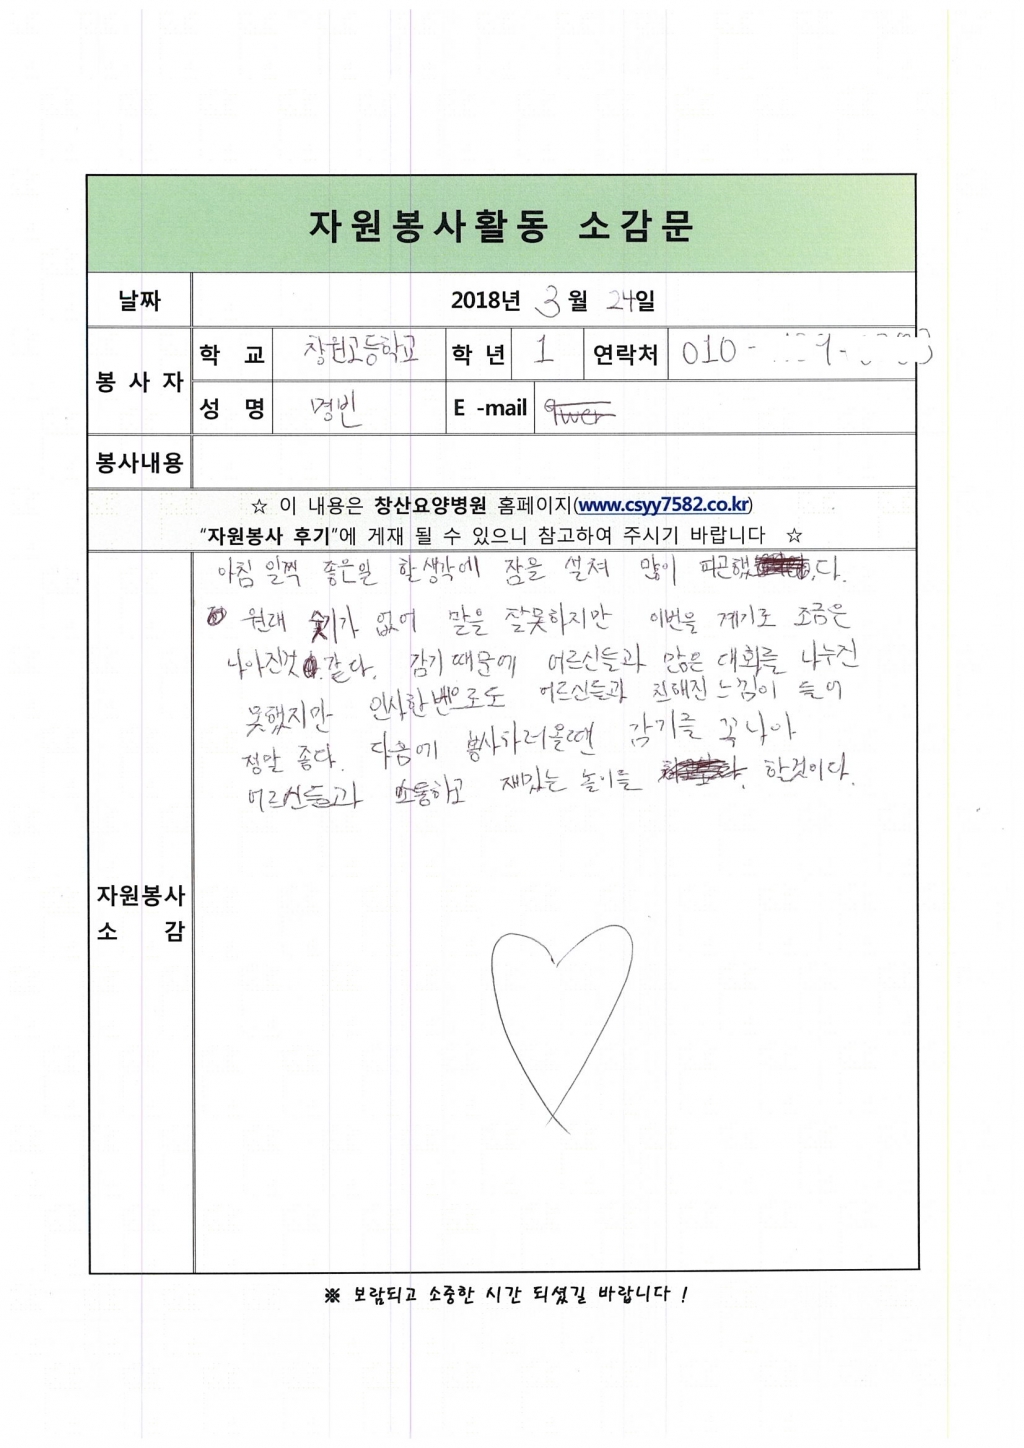 자원봉사활동 소감문
날짜 2018년 3월 24일
봉사자 학교 창원고등학교 학년 1 연락처 010 -
성명 명빈 E -mail qwer
봉사내용
☆ 이 내용은 창산요양병원 홈페이지(www.csyy7582.co.kr)
“자원봉사 후기”에 게재 될 수 있으니 참고하여 주시기 바랍니다 ☆
아침 일찍 좋은일 할생각에 잠을 설쳐 많이 피곤했다.
원래 숫기가 없어 말을 잘못하지만 이번을 계기로 조금은
나아진것 같다. 감기 때문에 어르신들과 많은 대화를 나누진
못했지만 인사한번으로도 어르신들과 친해진 느낌이 들어
정말 좋다. 다음에 봉사하러올땐 감기를 꼭 나아
어르신들과 소통하고 재밌는 놀이를 할것이다.
자원봉사
소감
※ 보람되고 소중한 시간 되셨길 바랍니다 !